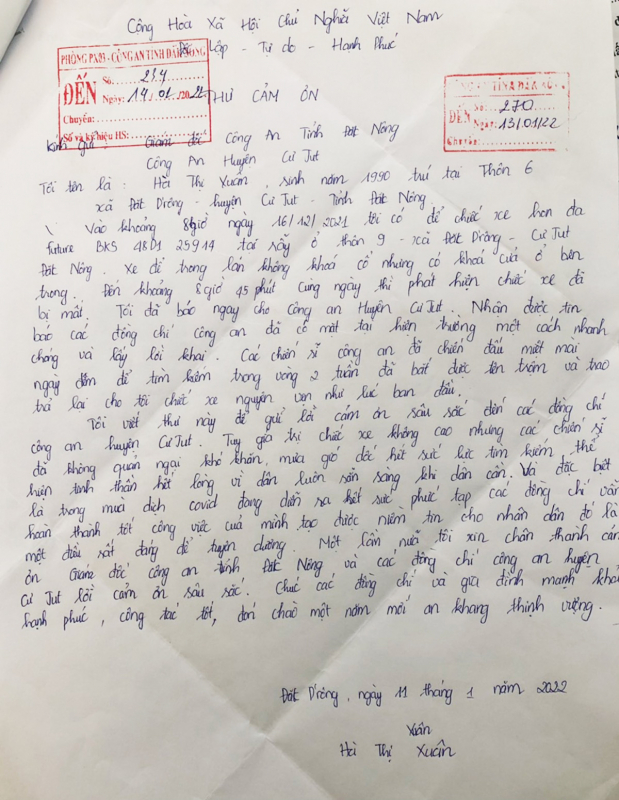 Cộng Hoà Xã Hội Chủ Nghĩa Việt Nam
Độc Lập - Tự do - Hạnh Phúc
PHÒNG PX03 - CÔNG AN TỈNH ĐẮK NÔNG
ĐẾN
Số: 234
Ngày: 14/01/2022
Chuyển:
Số và ký hiệu HS:
CÔNG AN TỈNH ĐẮK NÔNG
ĐẾN
Số: 270
Ngày: 13/01/22
Chuyển:
THƯ CẢM ƠN
Kính gửi: Giám đốc Công An Tỉnh Đắt Nông
Công An Huyện Cư Jut
Tôi tên là : Hà Thị Xuân, sinh năm 1990 trú tại Thôn 6
xã Đăt D'rông - huyện Cư Jut - Tỉnh Đắt Nông
Vào khoảng 8giờ ngày 16/12/2021 tôi có để chiếc xe hon da
future BKS 48D1 25914 tại rẫy ở thôn 9 - xã Đăt D'rông - Cư Jut
Đăt Nông. Xe để trong lán không khoá cổ nhưng có khoá cửa ở bên
trong. Đến khoảng 8giờ 45 phút cùng ngày thì phát hiện chiếc xe đã
bị mất. Tôi đã báo ngay cho công an Huyện Cư Jut. Nhận được tin
báo các đồng chí công an đã có mặt tại hiện trường một cách nhanh
chóng và lấy lời khai. Các chiến sĩ công an đã chiến đấu miệt mài
ngày đêm để tìm kiếm trong vòng 2 tuần đã bắt được tên trộm và trao
trả lại cho tôi chiếc xe nguyên vẹn như lúc ban đầu.
Tôi viết thư này để gửi lời cảm ơn sâu sắc đến các đồng chí
công an huyện Cư Jut. Tuy giá trị chiếc xe không cao nhưng các chiến sĩ
đã không quản ngại khó khăn, mưa gió dốc hết sức lực tìm kiếm, thể
hiện tinh thần hết lòng vì dân luôn sẵn sàng khi dân cần. Và đặc biệt
là trong mùa dịch covid đang diễn ra hết sức phức tạp các đồng chí vẫn
hoàn thành tốt công việc của mình tạo được niềm tin cho nhân dân đó là
một điều rất đáng để tuyên dương. Một lần nữa tôi xin chân thành cảm
ơn Giám đốc công an tỉnh Đăt Nông và các đồng chí công an huyện
Cư Jut lời cảm ơn sâu sắc. Chúc các đồng chí và gia đình mạnh khoẻ
hạnh phúc, công tác tốt, đón chào một năm mới an khang thịnh vượng.
Đăt D'rông, ngày 11 tháng 1 năm 2022
Xuân
Hà Thị Xuân